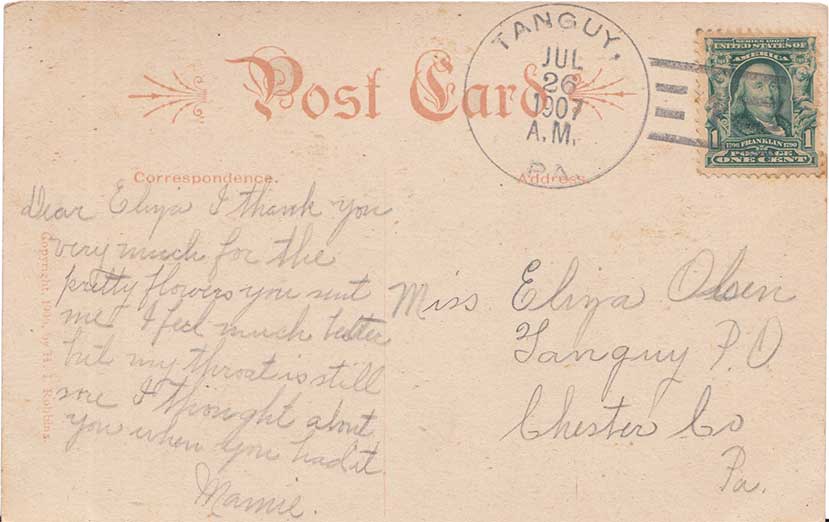 Post Card
TANGUY,
JUL
26
1907
A.M.
PA.
SERIES 1902
UNITED STATES OF
AMERICA
1 1706 FRANKLIN 1790 1
POSTAGE
ONE CENT
Correspondence.
Address.
Dear Eliza I thank you
very much for the
pretty flowers you sent
me I feel much better
but my throat is still
sore I thought about
you when you had it.
Mamie.
Miss Eliza Olsen
Tanguy P.O
Chester Co
Pa.
Copyright by H. I. Robbins.